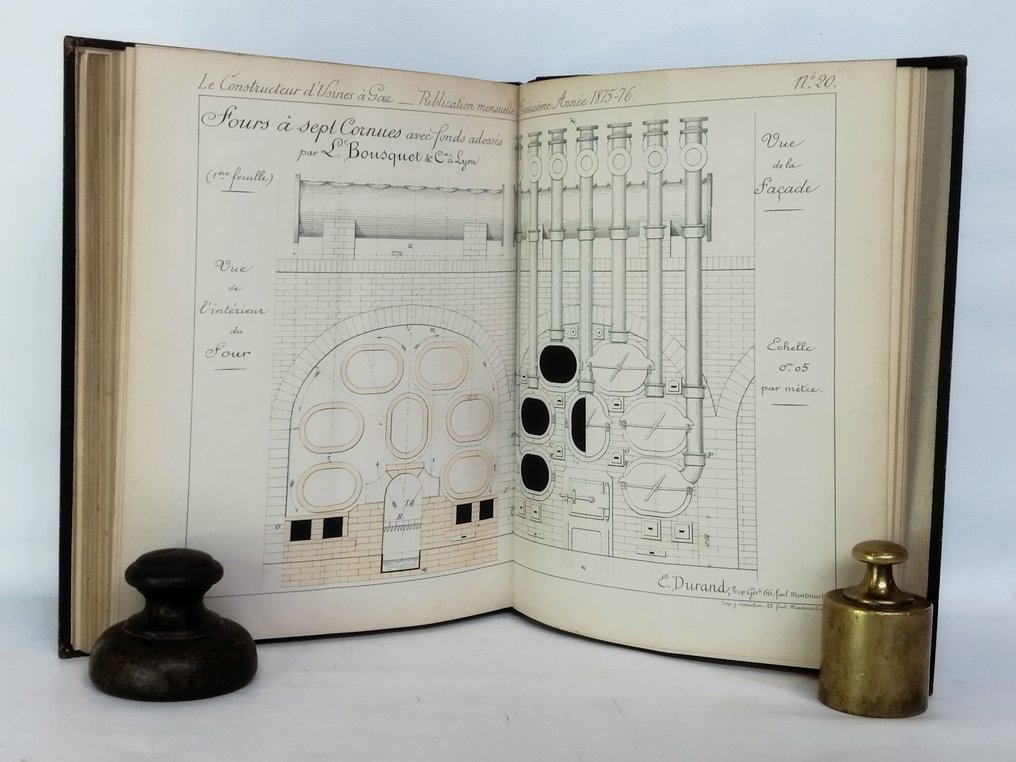 Le Constructeur d'Usines à Gaz _ Publication mensuelle
Deuxième Année 1875-76.
N° 20.
Fours à sept Cornues avec fonds adossés
par L. Bousquet & Cie à Lyon
(1ère feuille)
Vue
de
l'intérieur
du
Four
Vue
de la
Façade
Echelle
0m 05
par mètre.
E. Durand, Prop. Gért 66, faub. Montmart